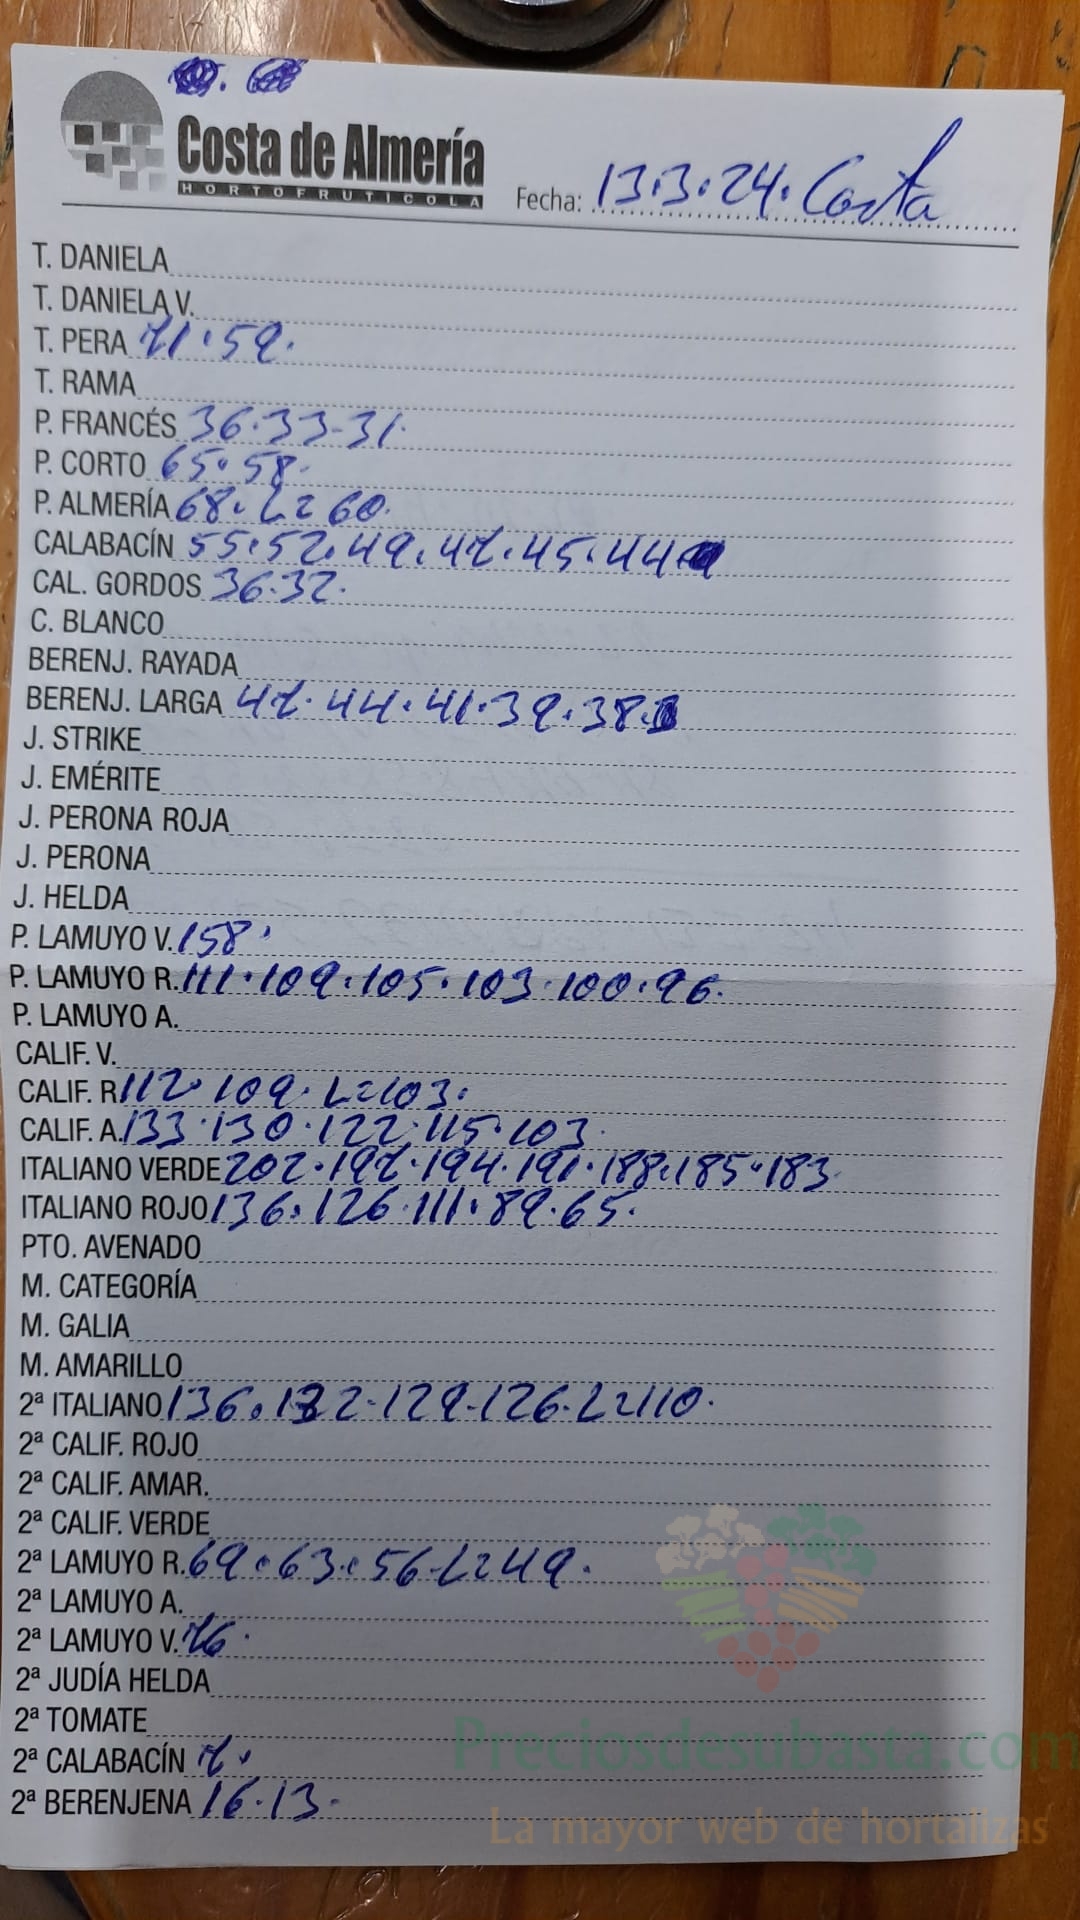 Costa de Almería
HORTOFRUTICOLA
Fecha: 13.3.24. Costa
T. DANIELA
T. DANIELA V.
T. PERA 71.59.
T. RAMA
P. FRANCÉS 36.33-31.
P. CORTO 65.58.
P. ALMERÍA 68. L= 60.
CALABACÍN 55.52.49.47.45.44
CAL. GORDOS 36.32.
C. BLANCO
BERENJ. RAYADA
BERENJ. LARGA 47.44.41.39.38.
J. STRIKE
J. EMÉRITE
J. PERONA ROJA
J. PERONA
J. HELDA
P. LAMUYO V. 158.
P. LAMUYO R. 111.109.105.103.100.96.
P. LAMUYO A.
CALIF. V.
CALIF. R 112.109. L=103.
CALIF. A. 133.130.122.115.103.
ITALIANO VERDE 202.197.194.191.188.185.183.
ITALIANO ROJO 136.126.111.89.65.
PTO. AVENADO
M. CATEGORÍA
M. GALIA
M. AMARILLO
2ª ITALIANO 136.132.129.126.L=110.
2ª CALIF. ROJO
2ª CALIF. AMAR.
2ª CALIF. VERDE
2ª LAMUYO R. 69.63.56.L=49.
2ª LAMUYO A.
2ª LAMUYO V. 76.
2ª JUDÍA HELDA
2ª TOMATE
2ª CALABACÍN 7.
2ª BERENJENA 16.13.
Preciosdesubasta.com
La mayor web de hortalizas